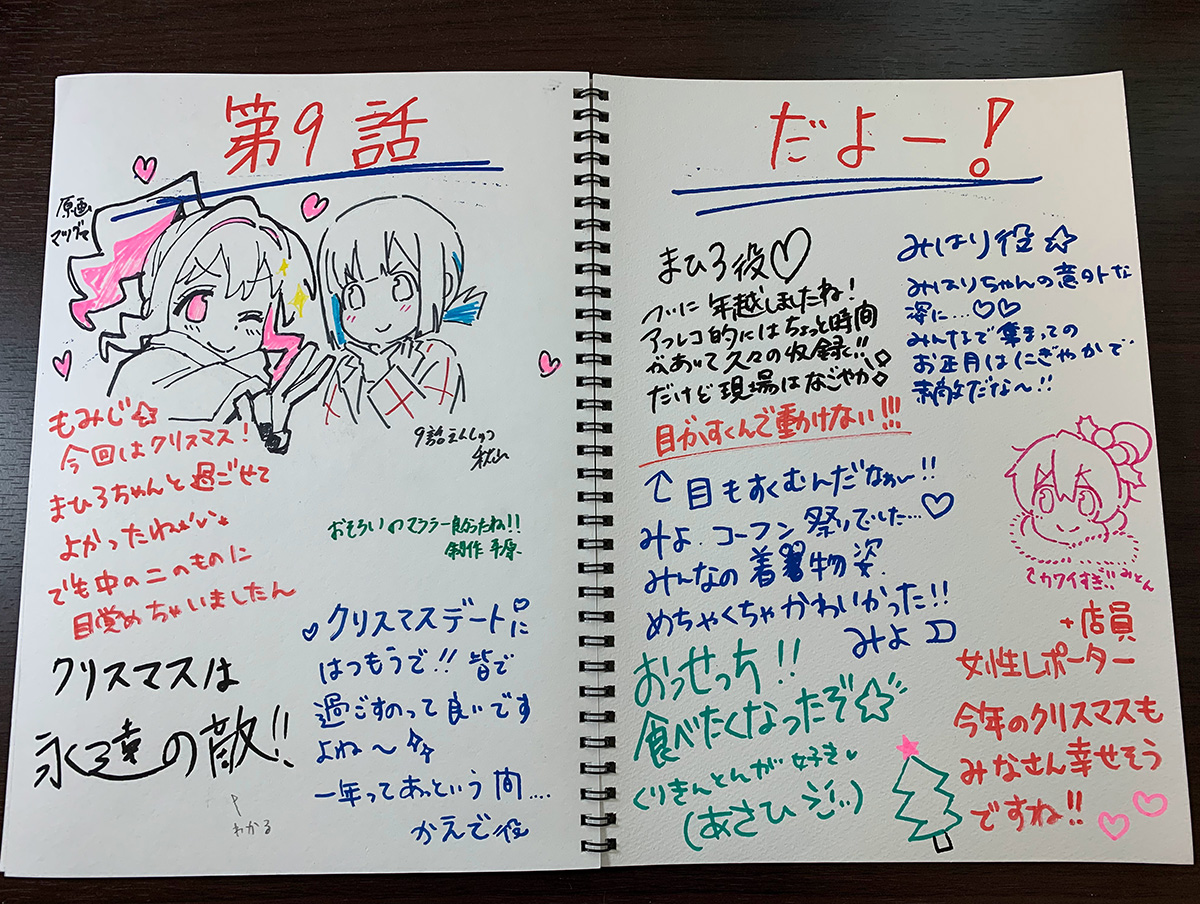 第9話
原画
マツダマ
もみじ☆
今回はクリスマス!
まひろちゃんと過ごせて
よかったねぇい
でも中の二のものに
目覚めちゃいましたん
9話えんしゅつ
おそろいのマフラー良かったね!!
制作 平原
クリスマスは
永遠の敵!!
わかる
♡クリスマスデート♡に
はつもうで!! 皆で
過ごすのって良いです
よね〜☆
一年ってあっという間....
かえで役
だよー!
まひろ役♡
ついに年越しましたね!
アフレコ的にはちょっと時間
があいて久々の収録で!!
だけど現場はなごやか◇
目がすくんで動けない!!!
↑目もすくむんだなぁ〜!!
みよ、コーフン祭りでした...♡
みんなの着物姿、
めちゃくちゃかわいかった!!
みよ
おっせっち!!
食べたくなったぞ☆
くりきんとんが好き♥
(あさひ
みはり役☆
みはりちゃんの意外な
姿に...♡♡
みんなで集まっての
お正月はにぎやかで
素敵だな〜!!
↑カワイすぎ!! みとん
+店員
女性レポーター
今年のクリスマスも
みなさん幸せそう
ですね!!